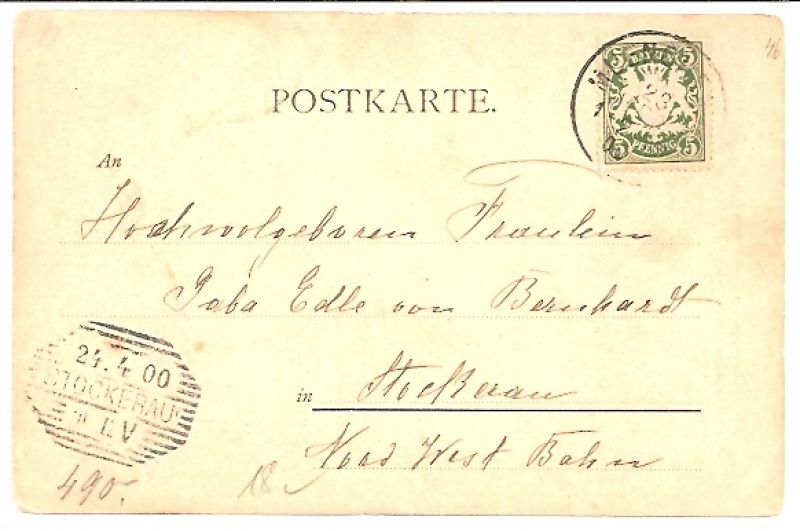 46
5 BAYERN 5
5 PFENNIG 5
POSTKARTE.
An
Hochwolgeboren Fräulein
Gaba Edle von Bernhardt
in Stockerau
Nord West Bahn
24.4.00
STOCKERAU
V
490.-
18